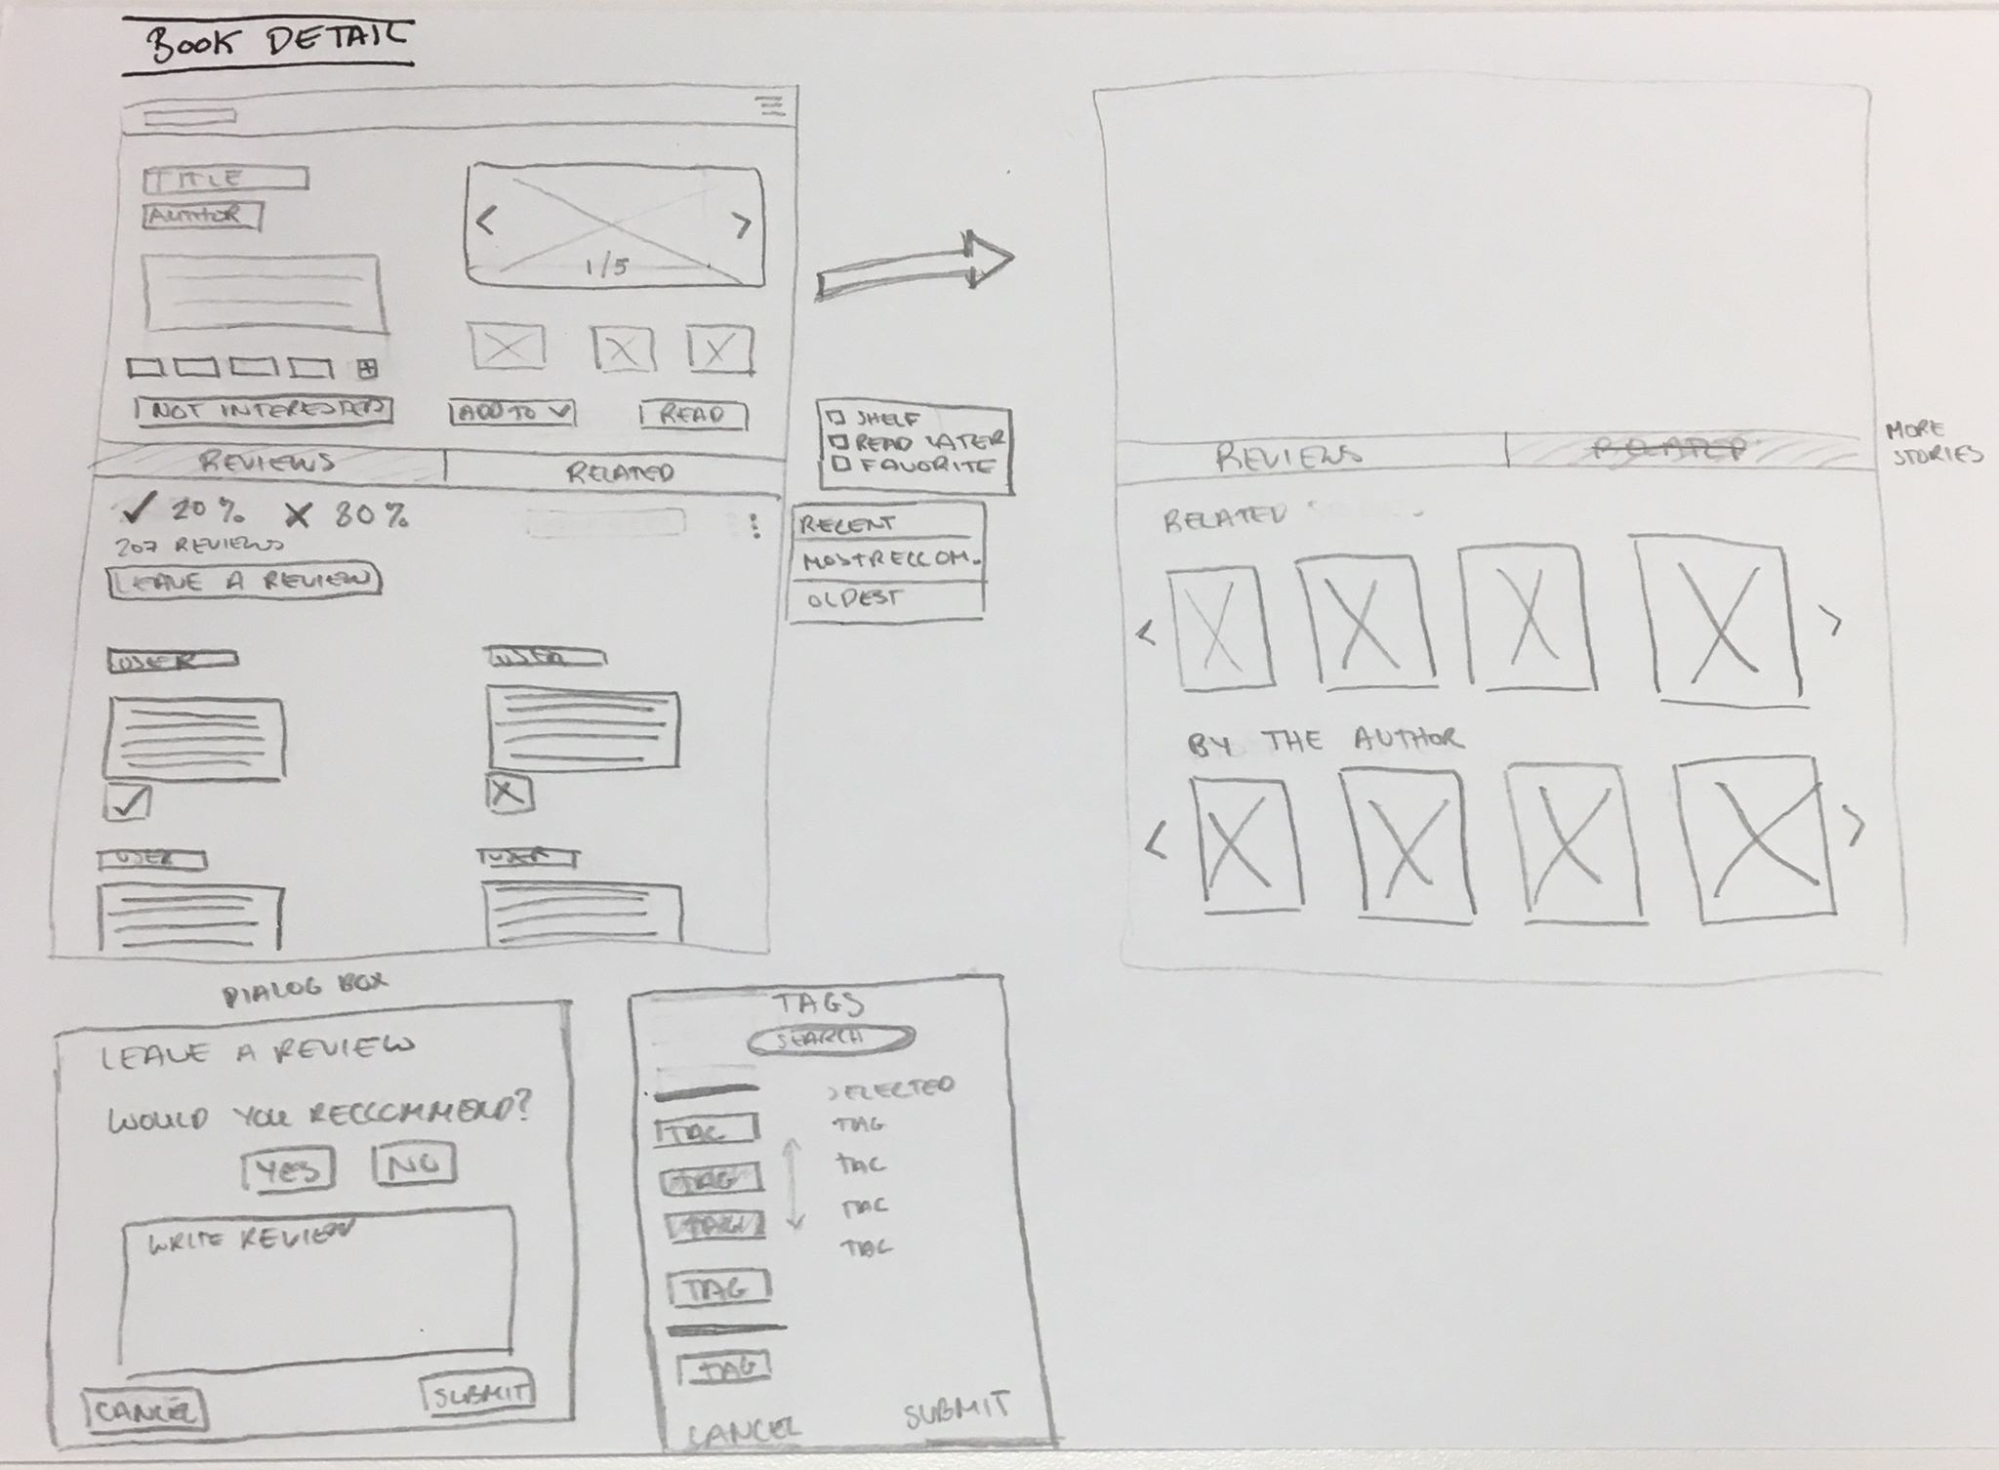 BOOK DETAIL
TITLE
AUTHOR
< >
1/5
+
NOT INTERESTED
ADD TO
READ
SHELF
READ LATER
FAVORITE
REVIEWS
RELATED
20% 80%
207 REVIEWS
LEAVE A REVIEW
RECENT
MOST RECCOM.
OLDEST
USER
USER
USER
USER
REVIEWS
RELATED
MORE
STORIES
RELATED
< >
BY THE AUTHOR
< >
DIALOG BOX
LEAVE A REVIEW
WOULD YOU RECCOMMEND?
YES
NO
WRITE REVIEW
CANCEL
SUBMIT
TAGS
SEARCH
SELECTED
TAG
TAG
TAG
TAG
TAG
TAG
TAG
TAG
TAG
CANCEL
SUBMIT